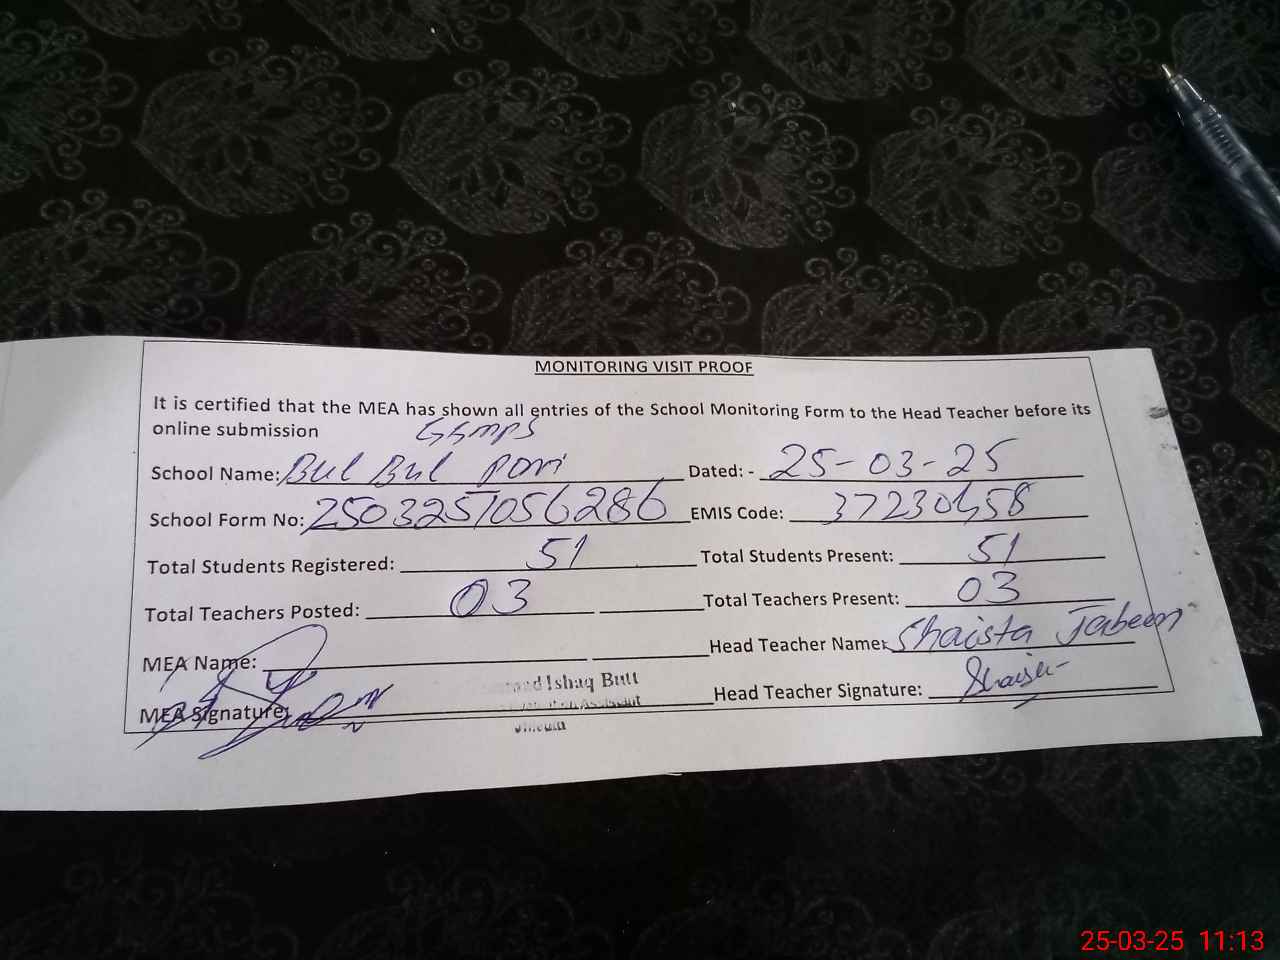 MONITORING VISIT PROOF
It is certified that the MEA has shown all entries of the School Monitoring Form to the Head Teacher before its
online submission
GGMPS
School Name: Bul Bul Pari Dated: - 25-03-25
School Form No: 2503257056286 EMIS Code: 37230458
Total Students Registered: 51 Total Students Present: 51
Total Teachers Posted: 03 Total Teachers Present: 03
MEA Name: Head Teacher Name: Shaista Jabeen
Ishaq Butt
MEA Signature: Head Teacher Signature: Shaista
25-03-25 11:13